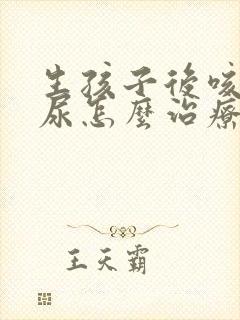 生孩子後咳
尿怎麼治療
王天霸